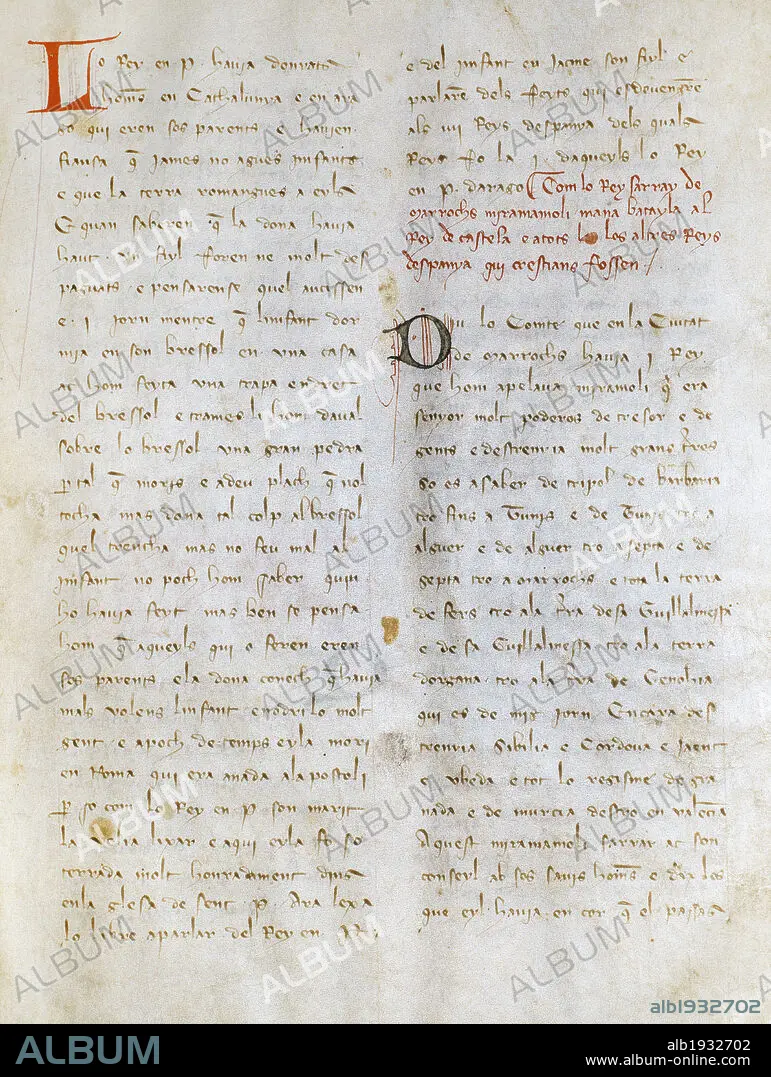 Lo Rey en P. havia honrats
homens en Cathalunya e en ara
go qui eren sos parents e havien
fiansa q̃ iames no agues infants
e que la terra romangues a eyls
E quan saberen q̃ la dona havia
haut un fiyl foren ne molt des
paguats e pensarense quel aucissen
e . i . iorn mentre q̃ linfant dor
mia en son bressol en una casa
ac hom feyta una trapa endret
del bressol e trames li hom daval
sobre lo bressol una gran pedra
ꝑ tal q̃ moris e a deu plach q̃ nol
tocha mas dona tal colp al bressol
quel trencha mas no feu mal al
infant no poch hom saber quiu
ho havia feyt mas ben se pensa
hom q̃ aqueyls qui o feren eren
sos parents e la dona conech q̃ havia
mals volens linfant e nodri lo molt
gent e apoch de temps eyla mori
en Roma qui era anada alapostoli
ꝑ so com lo Rey en P. son marit
la velia lixar e aqui eyla fo so
terrada molt honradament dins
en la glesa de sent . P. Ara lexa
lo libre a parlar del Rey en . P.
e del infant en Jacme son fiyl e
parlarē dels feyts qui esdevengrē
als vii Reys despanya dels quals
Reys fo la i. daqueyls lo Rey
en P. darago Com lo Rey sarray de
marrochs miramamoli mana batayla al
Rey de castela e a tots los altres Reys
despanya qui crestians fossen
Diu lo Comte que en la Ciutat
de marrochs havia i Rey
que hom apelava miramoli q̃ era
senyor molt poderos de tresor e de
gents e destrenyia molt grans t̃res
so es a saber de tripol de barbaria
tro fins a Tunis e de Tunis tro a
alguer e de alguer tro a septa e de
septa tro a marrochs e tota la terra
de fers tro a la t̃ra desa Guillalmessa
e de sa Guillalmessa tro a la terra
dorgana tro a la t̃ra de Genohia
qui es de mig iorn . Encara des
trenyia Sibilia e Cordova e Jaent
e ubeda e tot lo regisme de gra
nada e de murcia destro en valēcia
Aquest miramamoli sarray ac son
conseyl ab sos savis homēs e dix los
que eyl havia en cor q̃ el passas
ALBUM
alb1932702
ALBUM
alb1932702
www.album-online.com